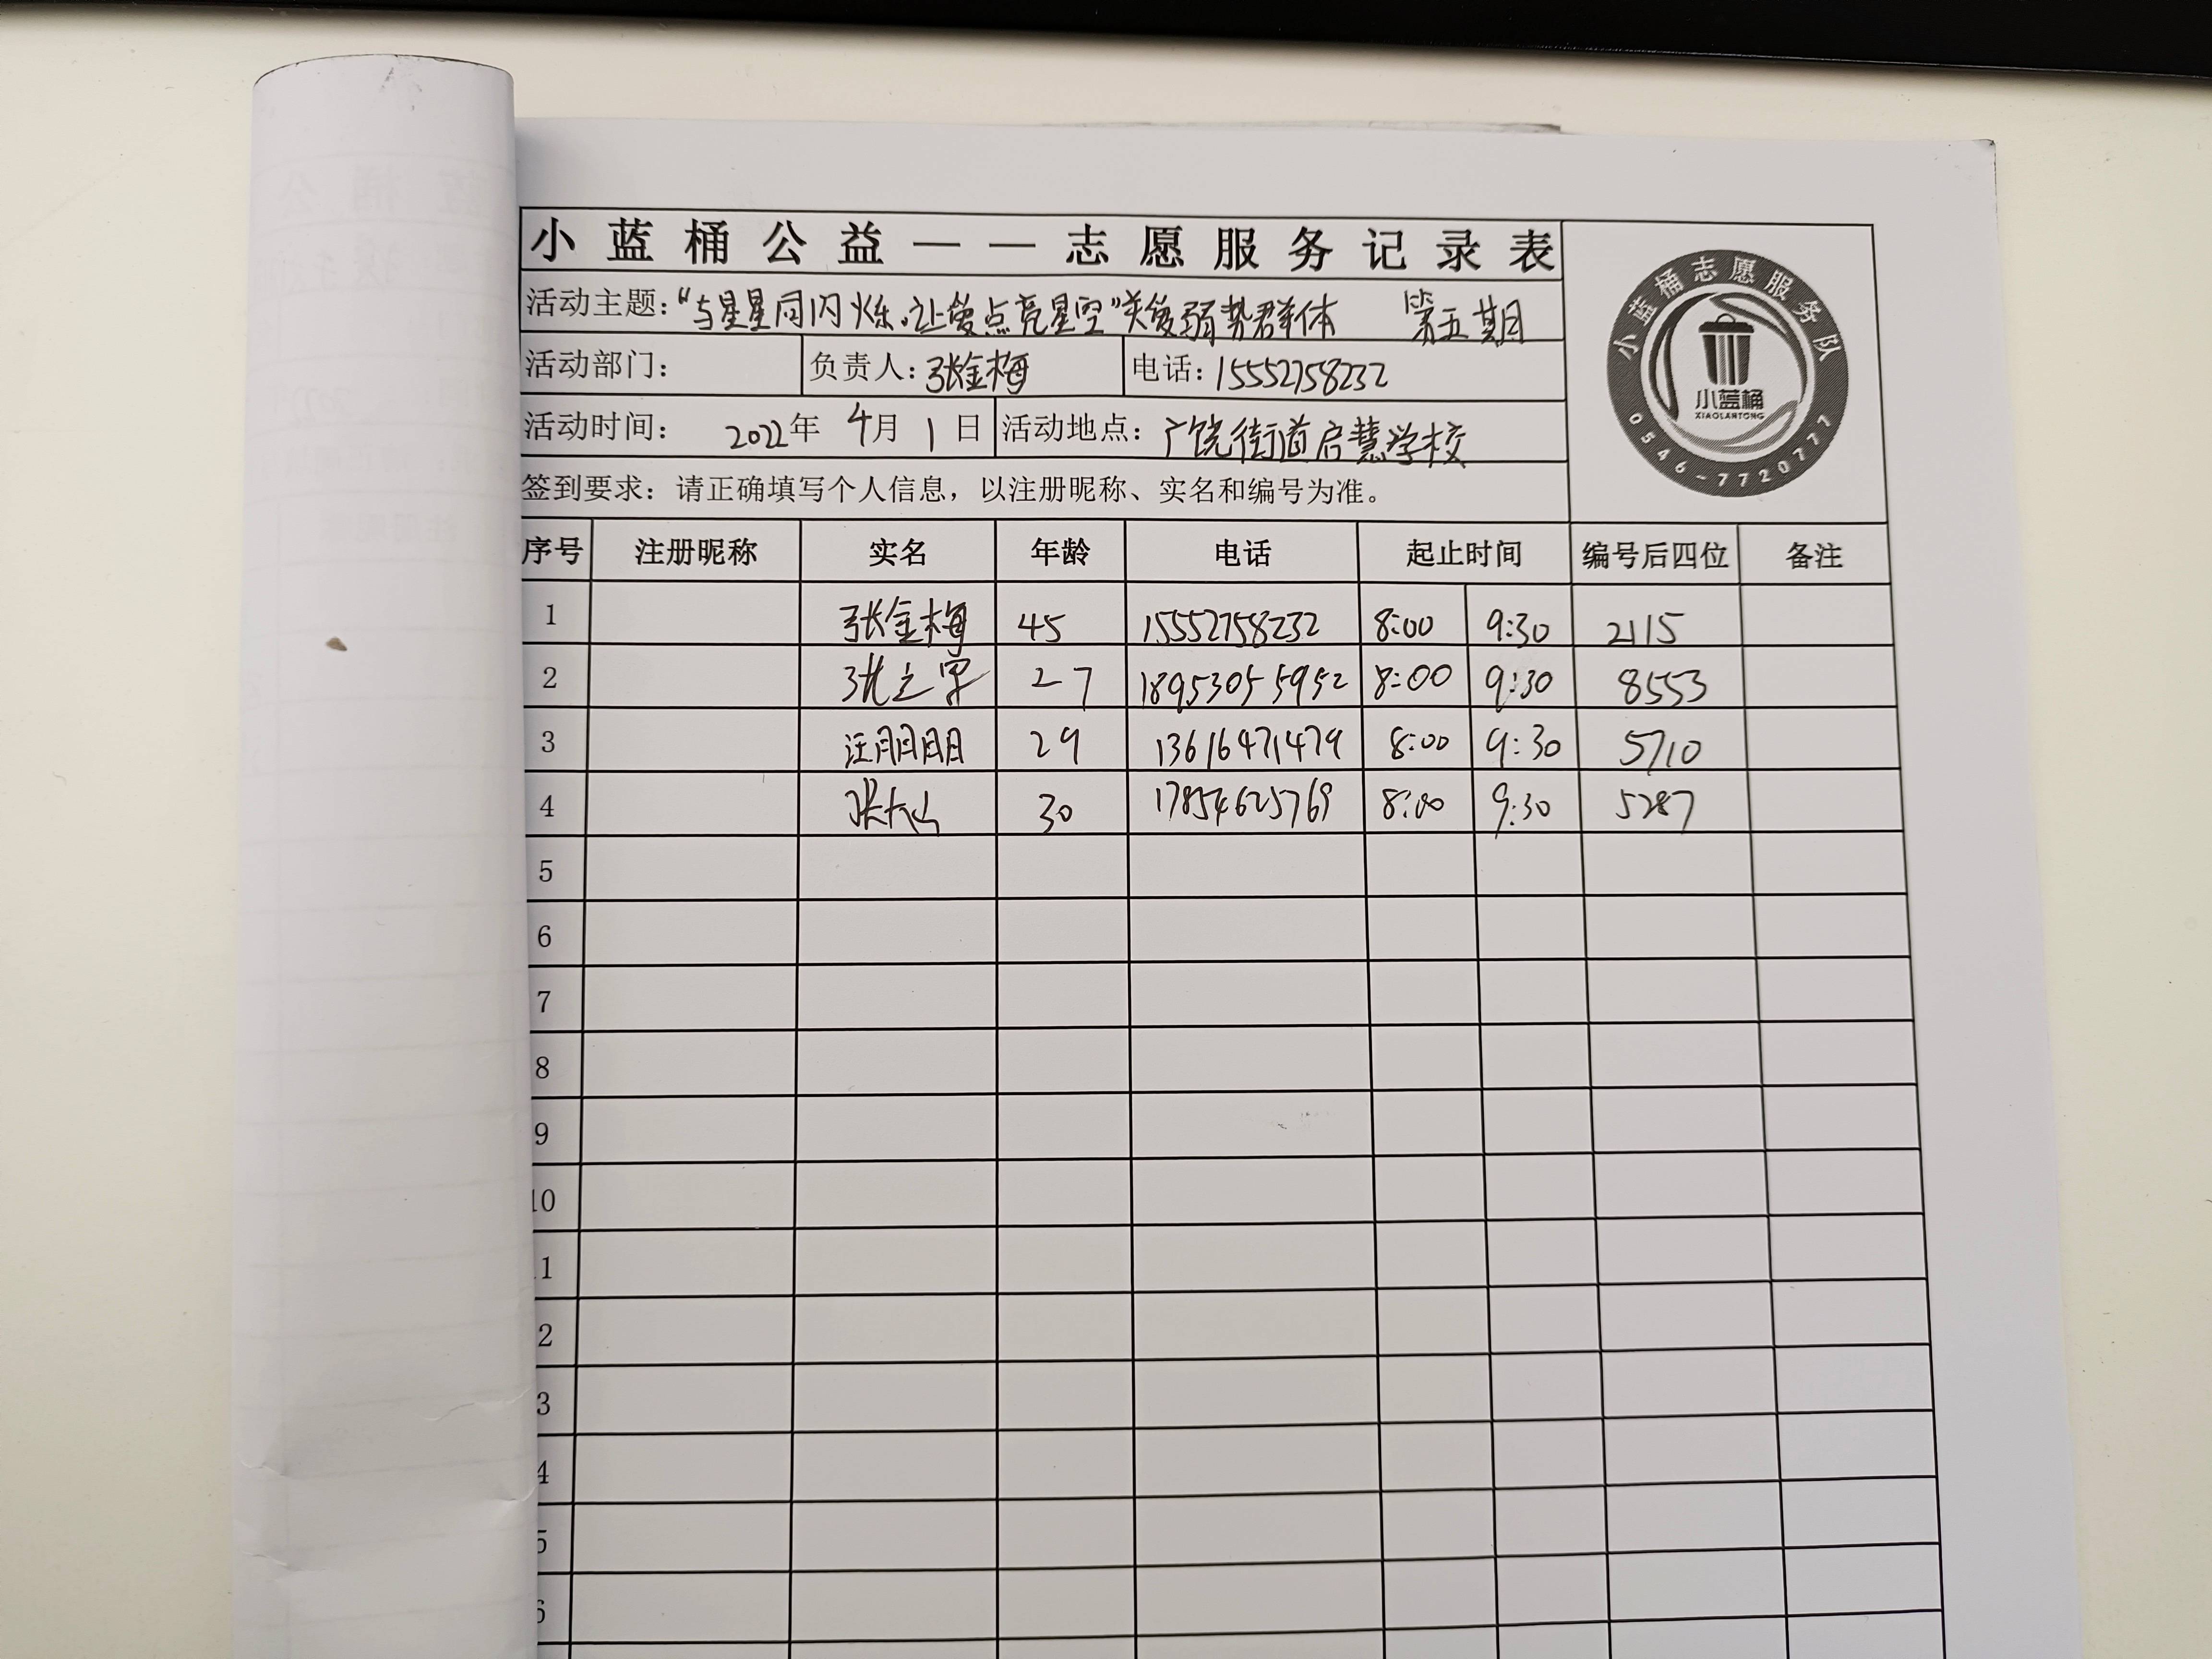 小蓝桶公益——志愿服务记录表
活动主题：“与星星同闪烁，让爱点亮星空”关爱弱势群体 第五期
活动部门： 负责人：张金梅 电话：15552758232
活动时间： 2022年 4月 1日 活动地点：广饶街道启慧学校
签到要求：请正确填写个人信息，以注册昵称、实名和编号为准。
小蓝桶志愿服务队
小蓝桶
XIAOLANTONG
0546-7720777
序号 注册昵称 实名 年龄 电话 起止时间 编号后四位 备注
1 张金梅 45 15552758232 8:00 9:30 2115
2 27 18953055952 8:00 9:30 8553
3 汪朋朋 29 13616471479 8:00 9:30 5710
4 30 17854625769 8:00 9:30 5287
5
6
7
8
9
10
1
2
3
4
5
6